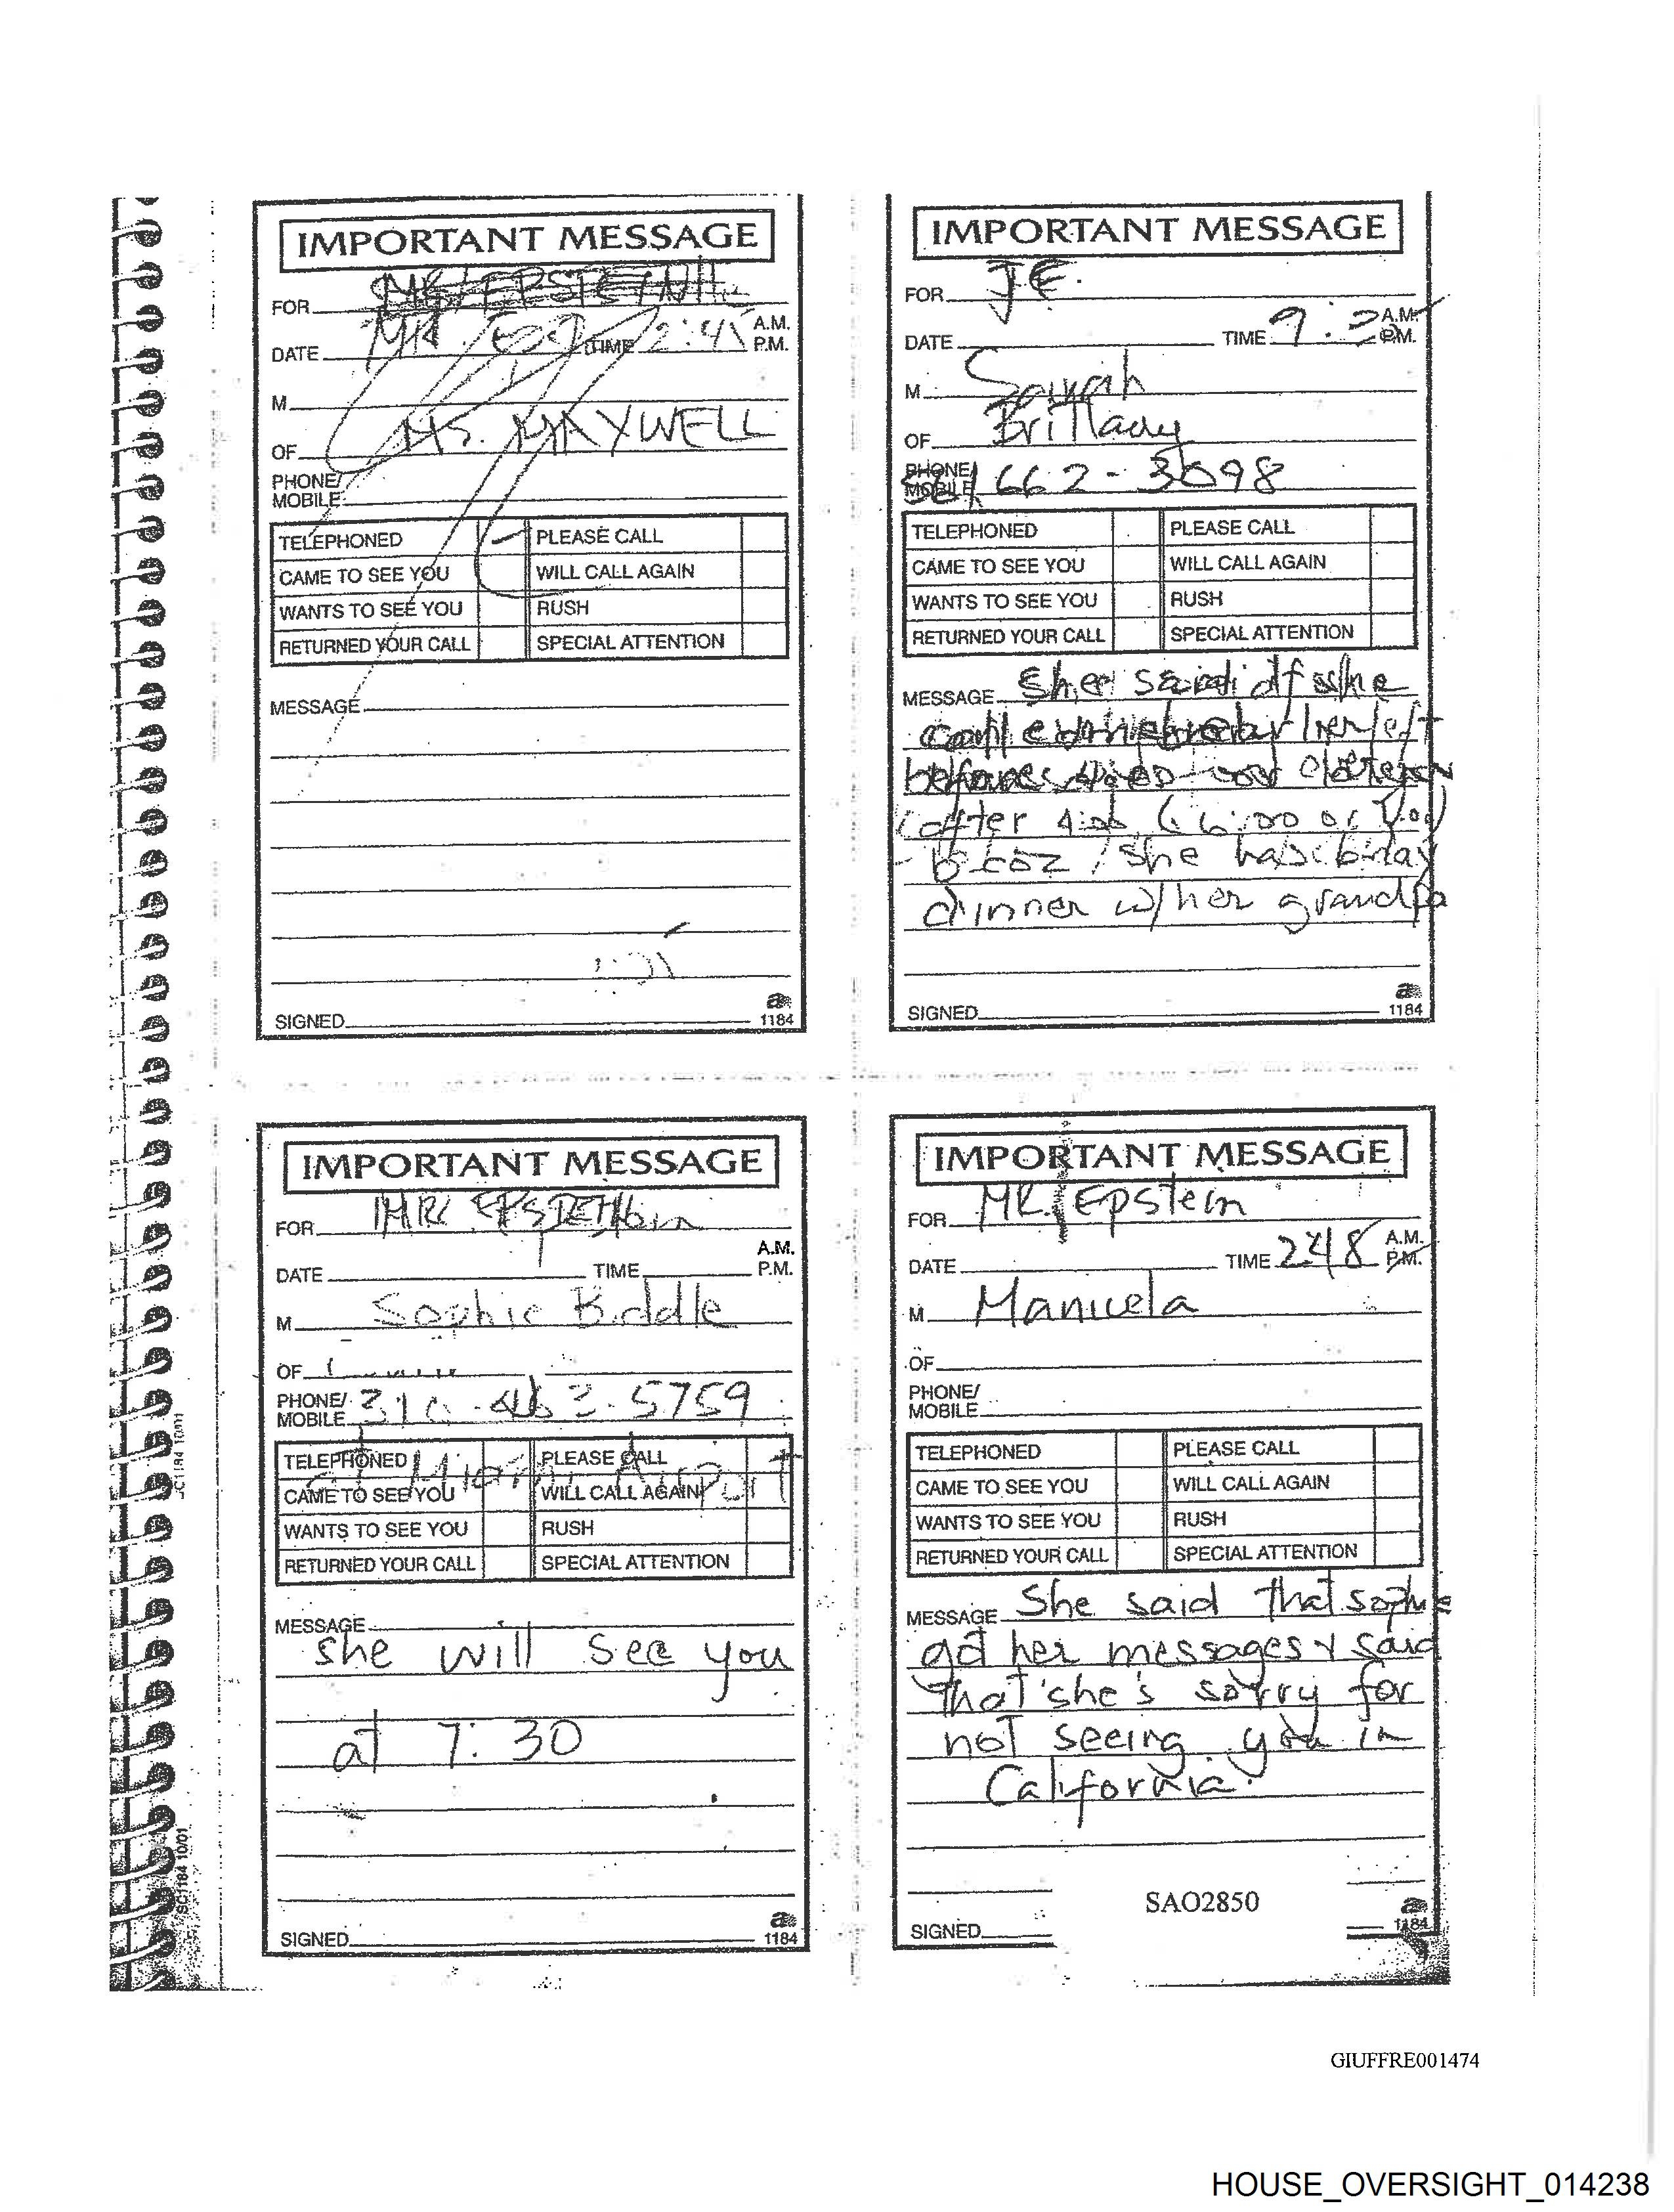 IMPORTANT MESSAGE
FOR MR. EPSTEIN
DATE TIME 2:45 A.M.
P.M.
M
OF MS. MAXWELL
PHONE/
MOBILE
TELEPHONED PLEASE CALL
CAME TO SEE YOU WILL CALL AGAIN
WANTS TO SEE YOU RUSH
RETURNED YOUR CALL SPECIAL ATTENTION
MESSAGE
SIGNED
1184
IMPORTANT MESSAGE
FOR J.E.
DATE TIME A.M.
P.M.
M
OF
PHONE/
MOBILE 561 662-3098
TELEPHONED PLEASE CALL
CAME TO SEE YOU WILL CALL AGAIN
WANTS TO SEE YOU RUSH
RETURNED YOUR CALL SPECIAL ATTENTION
MESSAGE She said if she
before
after 4:00 (6:00 or
b-coz she has
dinner w/her grandpa
SIGNED
1184
IMPORTANT MESSAGE
FOR MR. EPSTEIN
DATE TIME A.M.
P.M.
M Sophie Biddle
OF
PHONE/
MOBILE 310-463-5759
TELEPHONED PLEASE CALL
at Miami Airport
CAME TO SEE YOU WILL CALL AGAIN
WANTS TO SEE YOU RUSH
RETURNED YOUR CALL SPECIAL ATTENTION
MESSAGE
she will see you
at 7:30
SIGNED
1184
IMPORTANT MESSAGE
FOR MR. Epstein
DATE TIME 2:48 A.M.
P.M.
M Manuela
OF
PHONE/
MOBILE
TELEPHONED PLEASE CALL
CAME TO SEE YOU WILL CALL AGAIN
WANTS TO SEE YOU RUSH
RETURNED YOUR CALL SPECIAL ATTENTION
MESSAGE She said that sophie
got her messages & said
that she's sorry for
not seeing you in
California.
SAO2850
SIGNED
1184
SC1184 10/01
SC1184 10/01
GIUFFRE001474
HOUSE_OVERSIGHT_014238